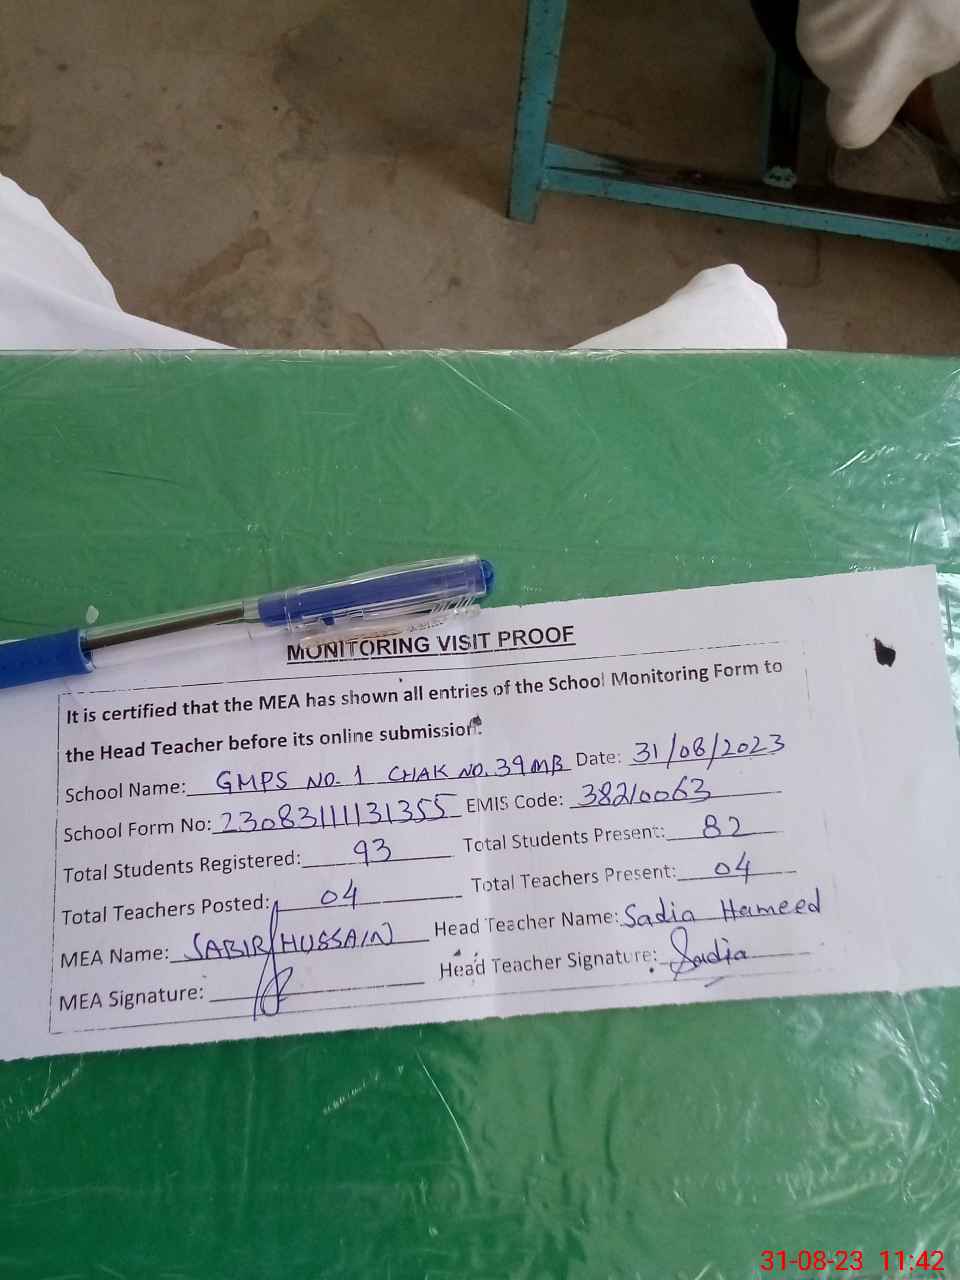 MONITORING VISIT PROOF
It is certified that the MEA has shown all entries of the School Monitoring Form to
the Head Teacher before its online submission.
School Name: GMPS NO. 1 CHAK NO. 39MB Date: 31/08/2023
School Form No: 23083111131355 EMIS Code: 38210063
Total Students Registered: 93 Total Students Present: 82
Total Teachers Posted: 04 Total Teachers Present: 04
MEA Name: SABIR HUSSAIN Head Teacher Name: Sadia Hameed
MEA Signature: Head Teacher Signature: Sadia
31-08-23 11:42